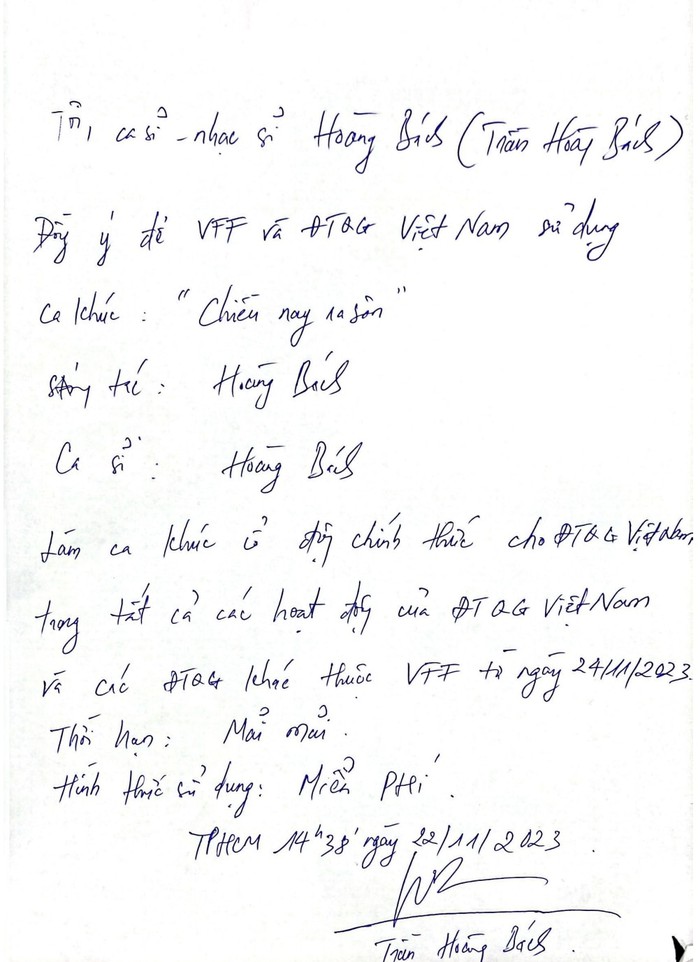 Tôi, ca sỉ - nhạc sỉ Hoàng Bách (Trần Hoàng Bách)
Đồng ý để VFF và ĐTQG Việt Nam sử dụng
Ca khúc : "Chiều nay ra sân"
sáng tác : Hoàng Bách
Ca sỉ : Hoàng Bách
Làm ca khúc cổ động chính thức cho ĐTQG Việt Nam,
trong tất cả các hoạt động của ĐTQG Việt Nam
và các ĐTQG khác thuộc VFF từ ngày 24/11/2023.
Thời hạn : Mải mải .
Hình thức sử dụng : Miển PHí .
TPHCM 14h38' ngày 22/11/2023 .
Trần Hoàng Bách .